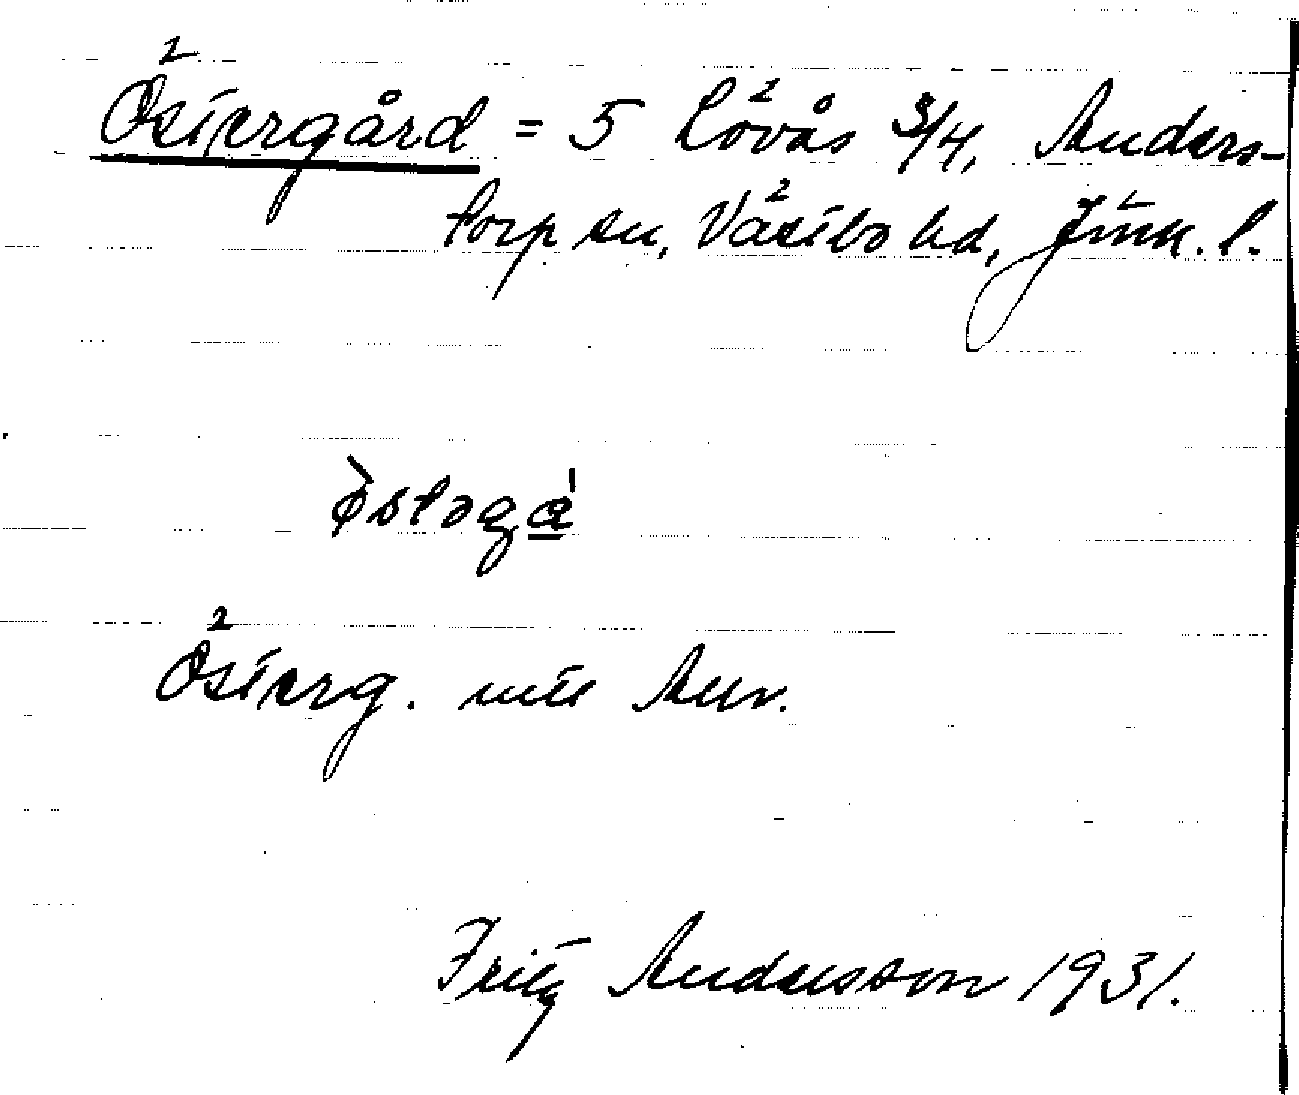 Östergård = 5 Lövås 3/4, Anders-
torp sn, Västbo hd, Jönk. l.
òstəgá
Österg.
Fritz Andersson 1931.